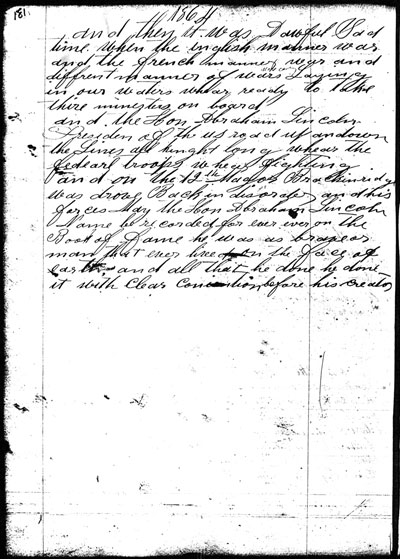 181.
1864
and then it was Dawful Sad
time. when the english manner war
and the french manner wor and
diffrent manner of wars Laying
in our waters whear ready to take
there ministers on board
and. the Hon Abraham Lincoln
Presiden of the us road up and down
the Lines all hinght long whear the
fedearl troops whear fighting
and on the 12th Madjor Brackinridge
was drove Back in disorder and his
forces. May the Hon Abraham Lincoln
Name be recorded for ever ever on the
Book of Dame he was as braver
man that ever lived on the face of
earth and all that he done he done
it with Clear before his creator